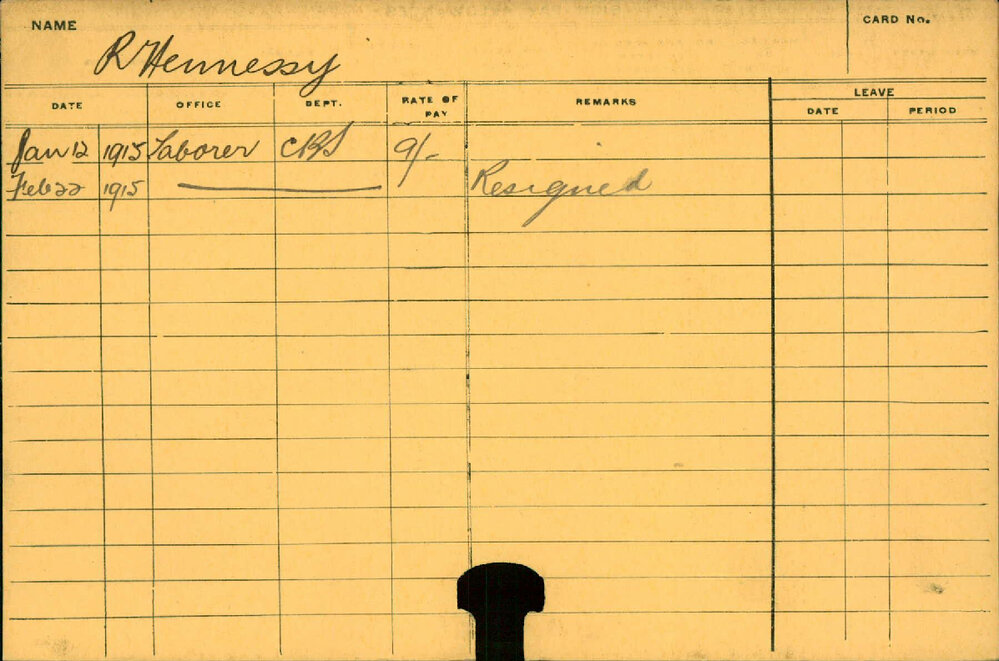 NAME
R Hennessy
CARD No.
DATE OFFICE DEPT. RATE OF PAY REMARKS LEAVE
DATE PERIOD
Jan 12 1915 Laborer CRS 9/-
Feb 22 1915 Resigned